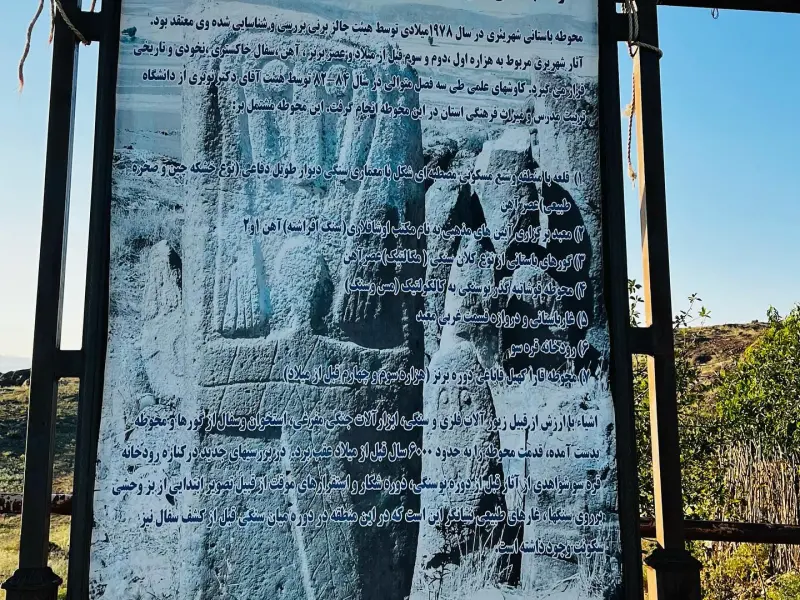 محوطه باستانی شهریئری در سال ۱۹۷۸میلادی توسط هیئت چالز برنی بررسی و شناسایی شده وی معتقد بود.
آثار شهریری مربوط به هزاره اول ،دوم و سوم قبل از میلاد وعصر برنز، آهن ،سفال خاکستری ،نخودی و تاریخی
قرار می گیرد. کاوشهای علمی طی سه فصل متوالی در سال ۸۴-۸۲ توسط هیئت آقای دکتر نوبری از دانشگاه
تربیت مدرس و میراث فرهنگی استان در این محوطه انجام گرفت. این محوطه مشتمل بر:
۱) قلعه با منطقه وسیع مسکونی مصطبه ای شکل با معماری سنگی دیوار طویل دفاعی (نوع خشکه چین و صخره
طبیعی)عصر آهن
۲) معبد برگزاری آیین های مذهبی به نام مکتب اوشاقلاری(سنگ افراشته) آهن ۱و۲
۳) گورهای باستانی از نوع کلان سنگی ( مگالتیک)عصر آهن
۴) محوطه قوشا تپه گذر نوسنگی به کالکولتیک (مس وسنگ)
۵) غار باستانی و دروازه قسمت غربی معبد
۶) رودخانه قره سو
۷) محوطه قارا کهیل قاباغی دوره برنز (هزاره سوم و چهارم قبل از میلاد)
اشیاء با ارزش از قبیل زیور آلات فلزی و سنگی، ابزار آلات جنگی مفرغی، استخوان وسفال از گورها و محوطه
بدست آمده، قدمت محوطه را به حدود ۶۰۰۰ سال قبل از میلاد عقب برد. در بررسیهای جدید در کناره رودخانه
قره سو شواهدی از آثار قبل از دوره نوسنگی، دوره شکار و استقرارهای موقت از قبیل تصویر ابتدایی از بز وحشی
برروی سنگها، غارهای طبیعی نشانگر این است که در این منطقه در دوره میان سنگی قبل از کشف سفال نیز
سکونت وجود داشته است